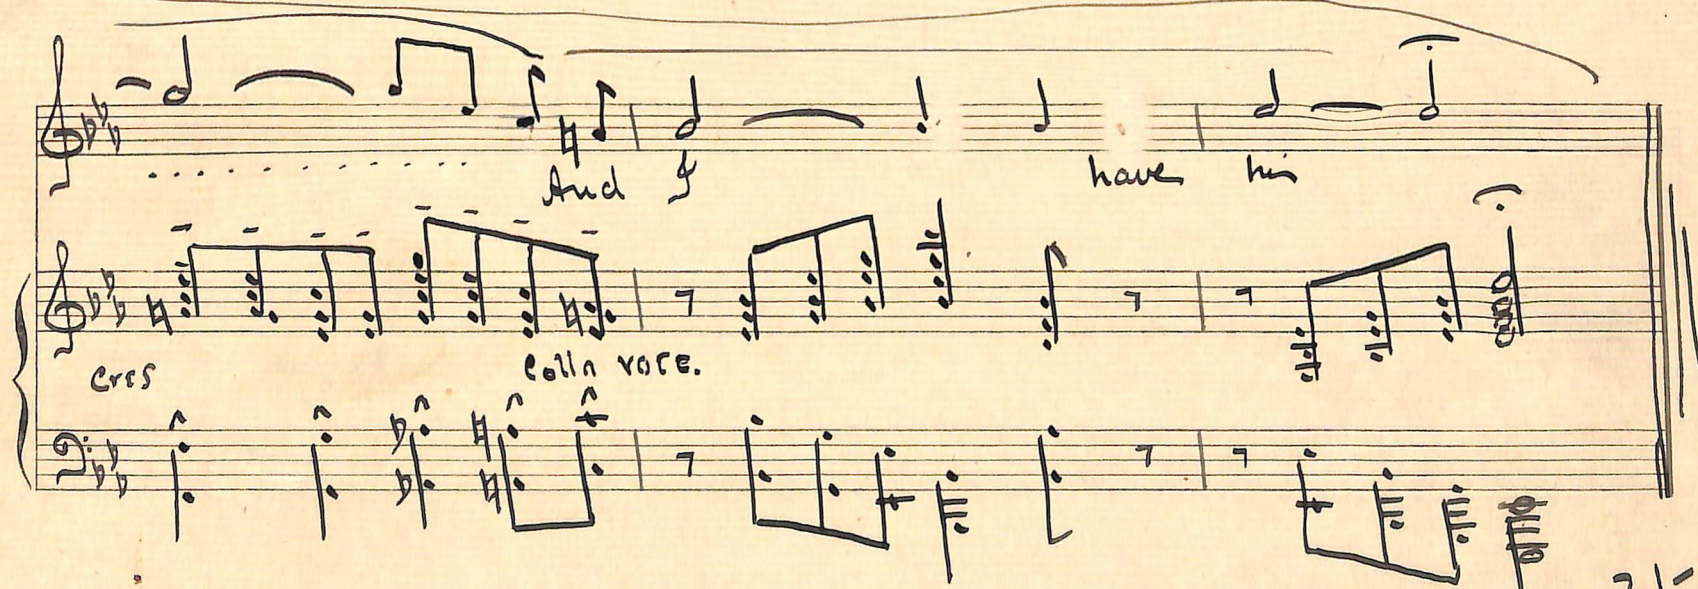 And I have his
Cres Colla voce.